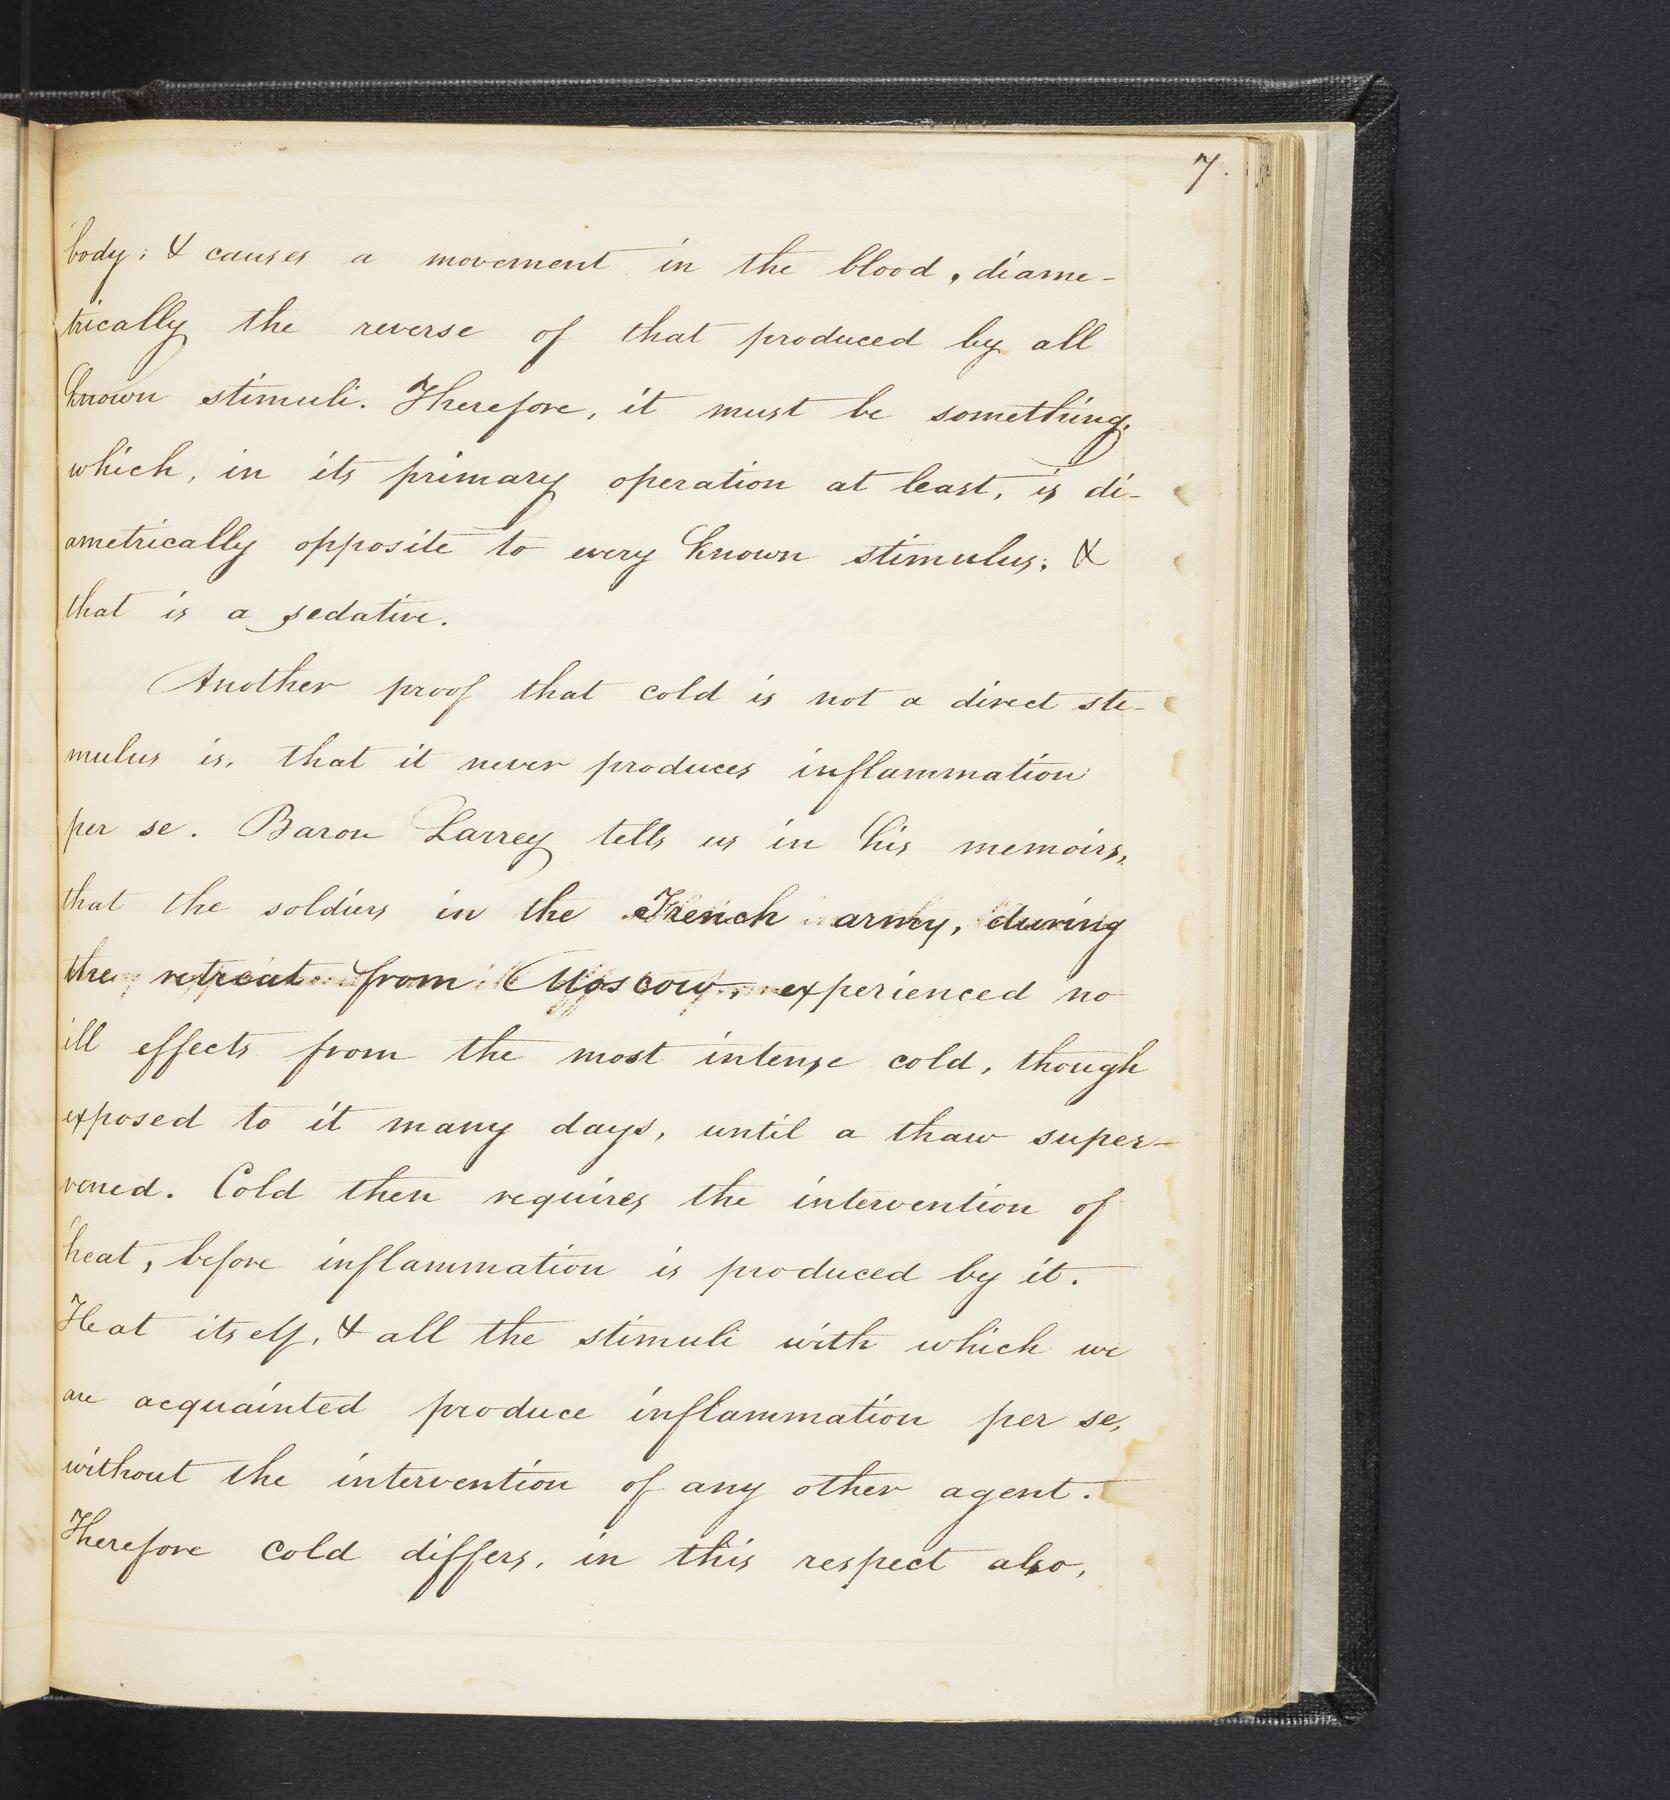 7.
body; & causes a movement in the blood, diame-
trically the reverse of that produced by all
known stimuli. Therefore, it must be something,
which, in its primary operation at least, is di-
ametrically opposite to every known stimulus; &
that is a sedative.
Another proof that cold is not a direct sti-
mulus is, that it never produces inflammation
per se. Baron Larrey tells us in his memoirs,
that the soldiers in the French army, during
the retreat from Moscow, experienced no
ill effects from the most intense cold, though
exposed to it many days, until a thaw super-
vened. Cold then requires the intervention of
heat, before inflammation is produced by it.
Heat itself, & all the stimuli with which we
are acquainted produce inflammation per se,
without the intervention of any other agent.
Therefore cold differs, in this respect also,